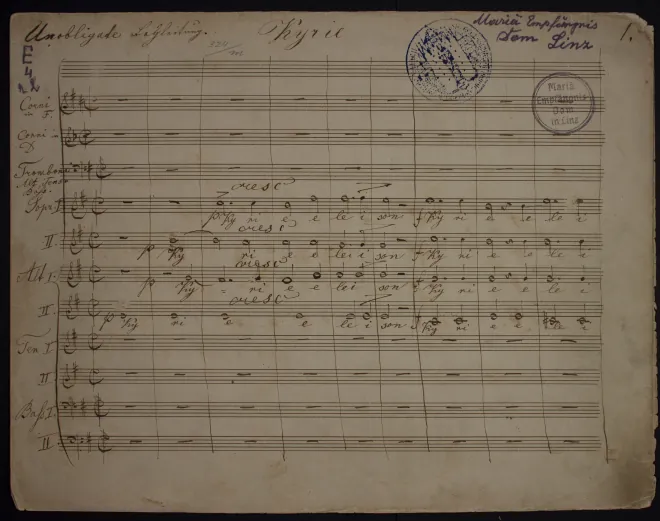 Unobligate Begleitung.
Kyrie
Mariä Empfängnis
Dom Linz
1.
E
4
Mariä
Empfängnis-
Dom
in Linz
Corni
in F.
Corni in
D
Trombone
Alt, Tenor
Bass.
cresc
Sopr. I
p Ky ri e e lei son f Ky ri e e le i
cresc
II.
p Ky ri e e lei son f Ky ri e e le i
cresc
Alt I.
p Ky ri e e lei son f Ky ri e e le i
cresc
II.
p Ky ri e e le i son f Ky ri e e le i
Ten I
II
Baß I.
II